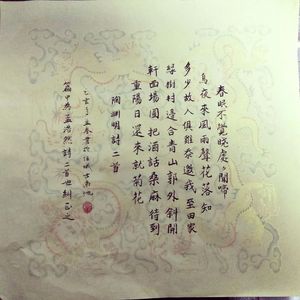 春眠不覺曉處〻聞啼
鳥夜來風雨聲花落知
多少故人俱雞黍邀我至田家
綠樹村邊合青山郭外斜開
軒西場圃把酒話桑麻待到
重陽日還來就菊花
陶渊明詩二首
乙亥年孟春書於
篇中為孟浩然詩二首世糾正之